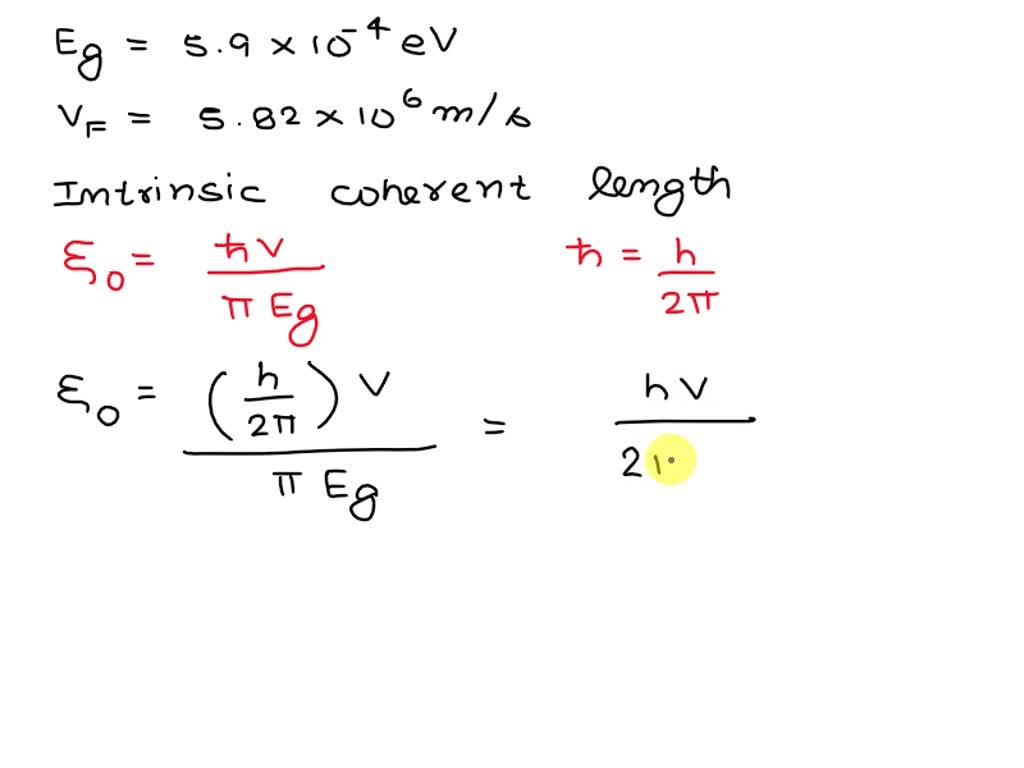 Eg = 5.9 × 10⁻⁴ eV
V_F = 5.82 × 10⁶ m/s
Intrinsic coherent length
ξ₀ = ℏV / π Eg ℏ = h / 2π
ξ₀ = (h / 2π) V / π Eg = hV / 2